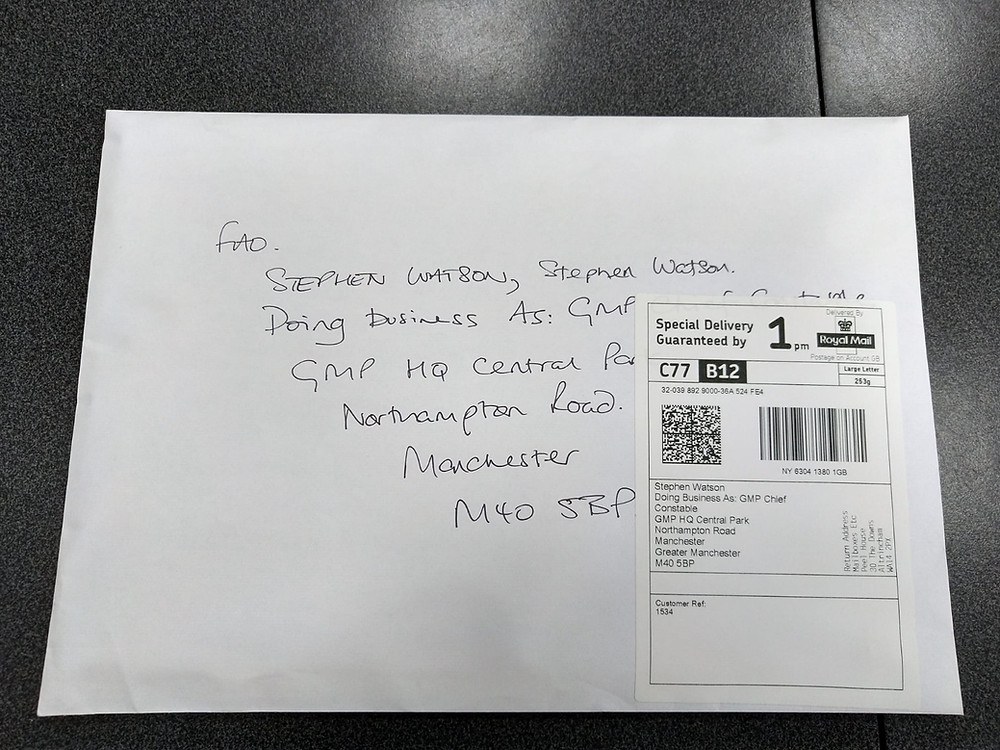 FAO.
STEPHEN WATSON, Stephen Watson.
Doing Business As: GMP
GMP HQ Central
Northampton Road.
Manchester
M40 5BP
Special Delivery
Guaranteed by
1pm
Delivered By
Royal Mail
Postage on Account GB
C77 B12
Large Letter
253g
32-039 892 9000-36A 524 FE4
NY 6304 1380 1GB
Stephen Watson
Doing Business As: GMP Chief
Constable
GMP HQ Central Park
Northampton Road
Manchester
Greater Manchester
M40 5BP
Return Address
Mailboxes Etc
Peel House
30 The Downs
Altrincham
WA14 2PX
Customer Ref:
1534